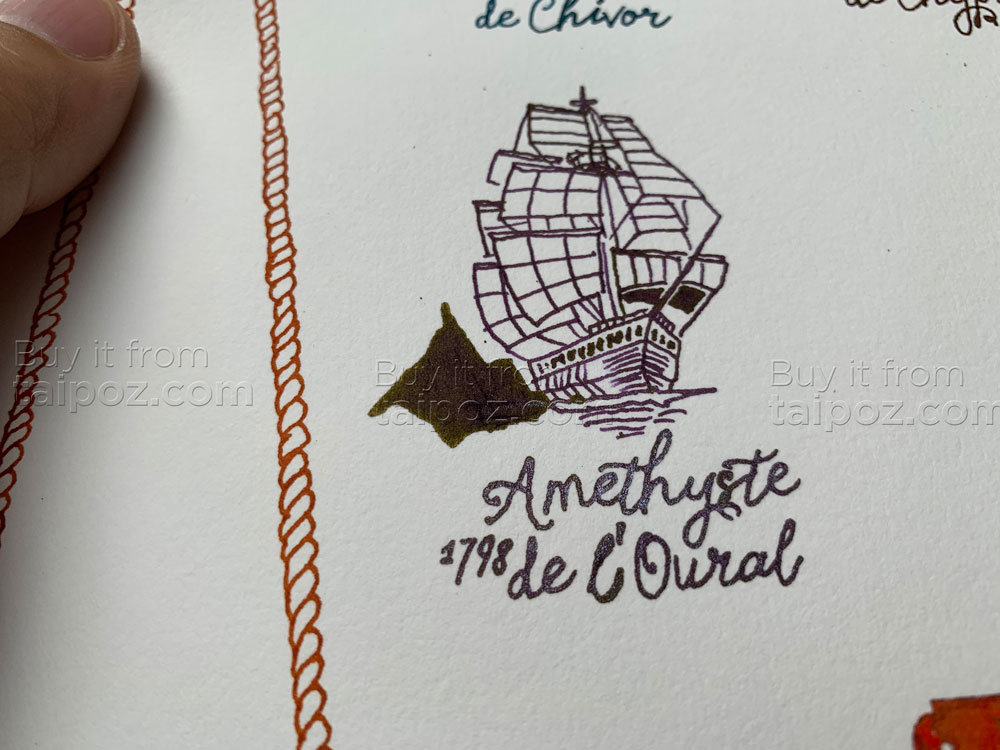 de Chivor
Buy it from
taipoz.com
Buy it from
taipoz.com
Buy it from
taipoz.com
Amethyste
1798 de l'Oural